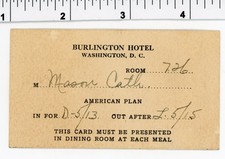 BURLINGTON HOTEL
WASHINGTON, D. C.
ROOM 726.
M Mason Cath.
AMERICAN PLAN
IN FOR D-5/13 OUT AFTER L-5/15
THIS CARD MUST BE PRESENTED
IN DINING ROOM AT EACH MEAL